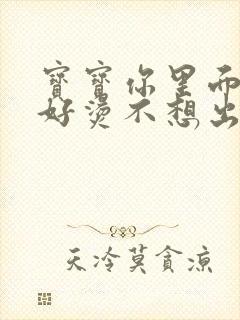 寶寶你里面
好燙不想出
天冷莫貪涼